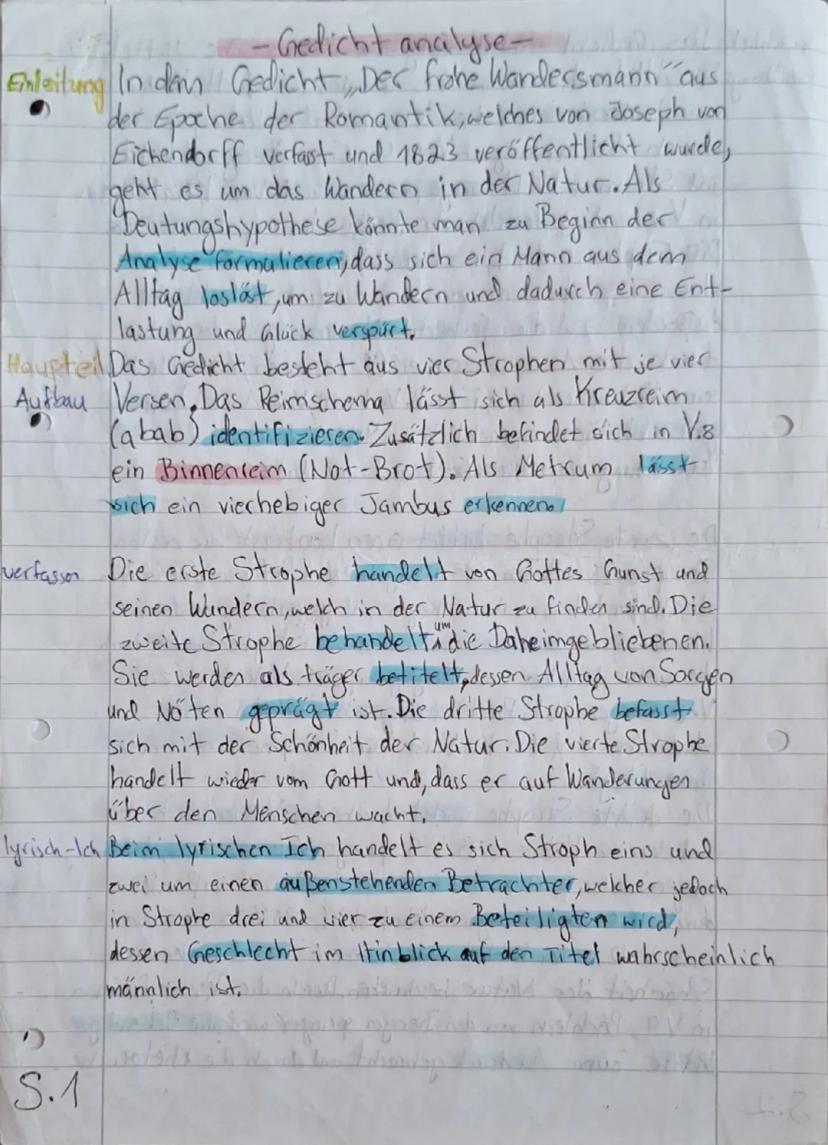 - Gedicht analyse -
Einleitung In dem Gedicht „Der frohe Wandersmann" aus
der Epoche der Romantik, welches von Joseph von
Eichendorff verfast und 1823 veröffentlicht wurde,
geht es um das Wandern in der Natur. Als
Deutungshypothese könnte man zu Beginn der
Analyse formulieren, dass sich ein Mann aus dem
Alltag loslöst, um zu Wandern und dadurch eine Ent-
lastung und Glück verspürt.
Haupteil Das Gedicht besteht aus vier Strophen mit je vier
Aufbau Versen. Das Reimschema lässt sich als Kreuzreim
(abab) identifizieren. Zusätzlich befindet sich in V.8
ein Binnenreim (Not-Brot). Als Metrum lässt
sich ein vierhebiger Jambus erkennen.
verfassen Die erste Strophe handelt von Gottes Gunst und
seinen Wundern, welch in der Natur zu finden sind. Die
zweite Strophe behandelt um die Daheimgebliebenen.
Sie werden als träger betitelt, dessen Alltag von Sorgen
und Nöten geprägt ist. Die dritte Strophe befasst
sich mit der Schönheit der Natur. Die vierte Strophe
handelt wieder vom Gott und, dass er auf Wanderungen
über den Menschen wacht.
lyrisch-Ich Beim lyrischen Ich handelt es sich Stroph eins und
zwei um einen außenstehenden Betrachter, welcher jedoch
in Strophe drei und vier zu einem Beteiligten wird,
dessen Geschlecht im Hinblick auf den Titel wahrscheinlich
männlich ist.
S.1